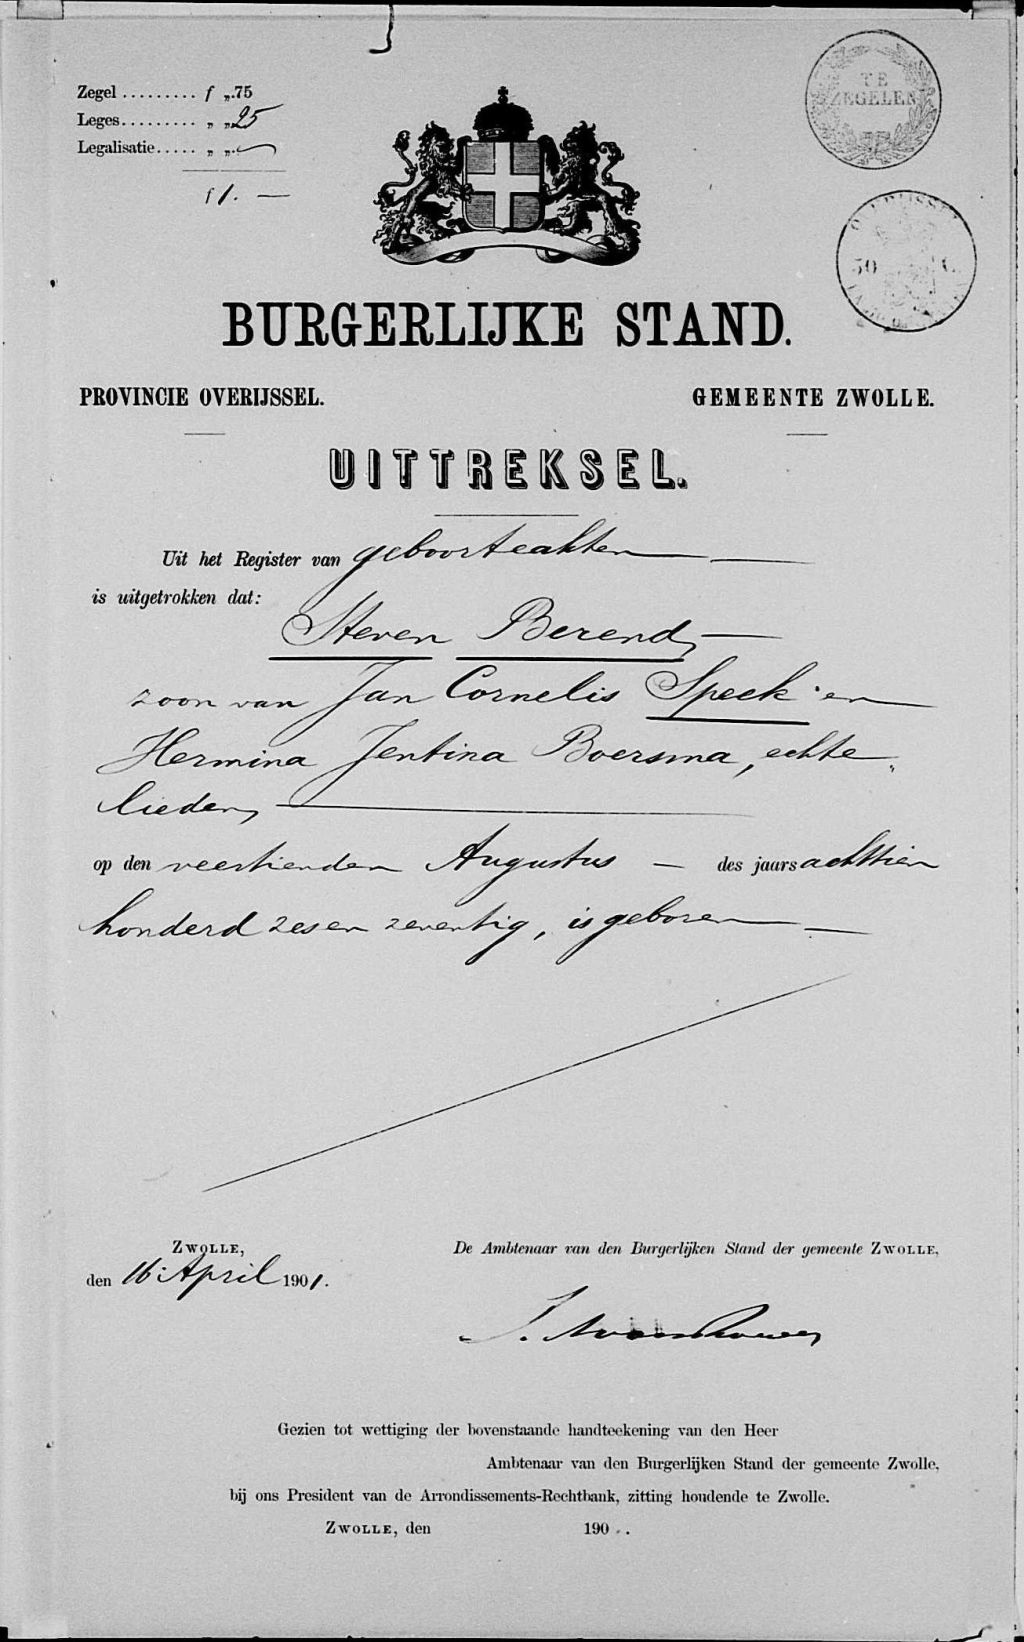 Zegel ......... f „.75
Leges......... „ „25
Legalisatie..... „ „.—
f 1. —
TE
ZEGELEN
50 C.
BURGERLIJKE STAND.
PROVINCIE OVERIJSSEL.
GEMEENTE ZWOLLE.
UITTREKSEL.
Uit het Register van geboorteakten
is uitgetrokken dat:
Steven Berend,
zoon van Jan Cornelis Speek en
Hermina Jentina Boersma, echte„
lieden,
op den veertienden Augustus — des jaars achttien
honderd zes en zeventig, is geboren
ZWOLLE,
den 16 April 1901.
De Ambtenaar van den Burgerlijken Stand der gemeente ZWOLLE,
Gezien tot wettiging der bovenstaande handteekening van den Heer
Ambtenaar van den Burgerlijken Stand der gemeente Zwolle,
bij ons President van de Arrondissements-Rechtbank, zitting houdende te Zwolle.
ZWOLLE, den 190 . .